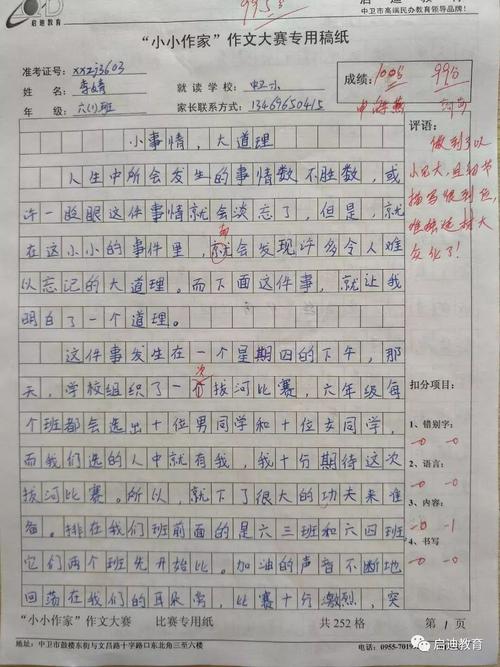 启迪教育
995分
启迪教育
中卫市高端民办教育领导品牌!
“小小作家”作文大赛专用稿纸
准考证号：xxzj3603
姓 名：李婧
就 读 学 校：中卫一小
年 级：六(1)班
家长联系方式：13469650415
成绩：
100分
99分
小事情，大道理
人生中所会发生的事情数不胜数，或
许一眨眼这件事情就会淡忘了，但是，就
在这小小的事件里，就会发现许多令人难
以忘记的大道理。而下面这件事，就让我
明白了一个道理。
这件事发生在一个星期四的下午，那
次
天，学校组织了一个拔河比赛，六年级每
个班都会选出十位男同学和十位女同学，
而我们选的人中就有我，我十分期待这次
拔河比赛。所以，就下了很大的功夫来准
备。排在我们班前面的是六三班和六四班
它们两个班先开始比。加油的声音不断地
回荡在我们的耳朵旁，比赛十分激烈，突
评语：
做到了以
小见大，且细节
描写很到位，
难能选材大
众化了！
扣分项目：
1、错别字：
-0 -0
2、语言：
-0 -0
3、内容：
-0 -1
4、书写
-0 -0
“小小作家”作文大赛 比赛专用纸
共 252 格
第 1 页
中卫市鼓楼东街与文昌路十字路口东北角三至六楼
电话：0955-7019
启迪教育